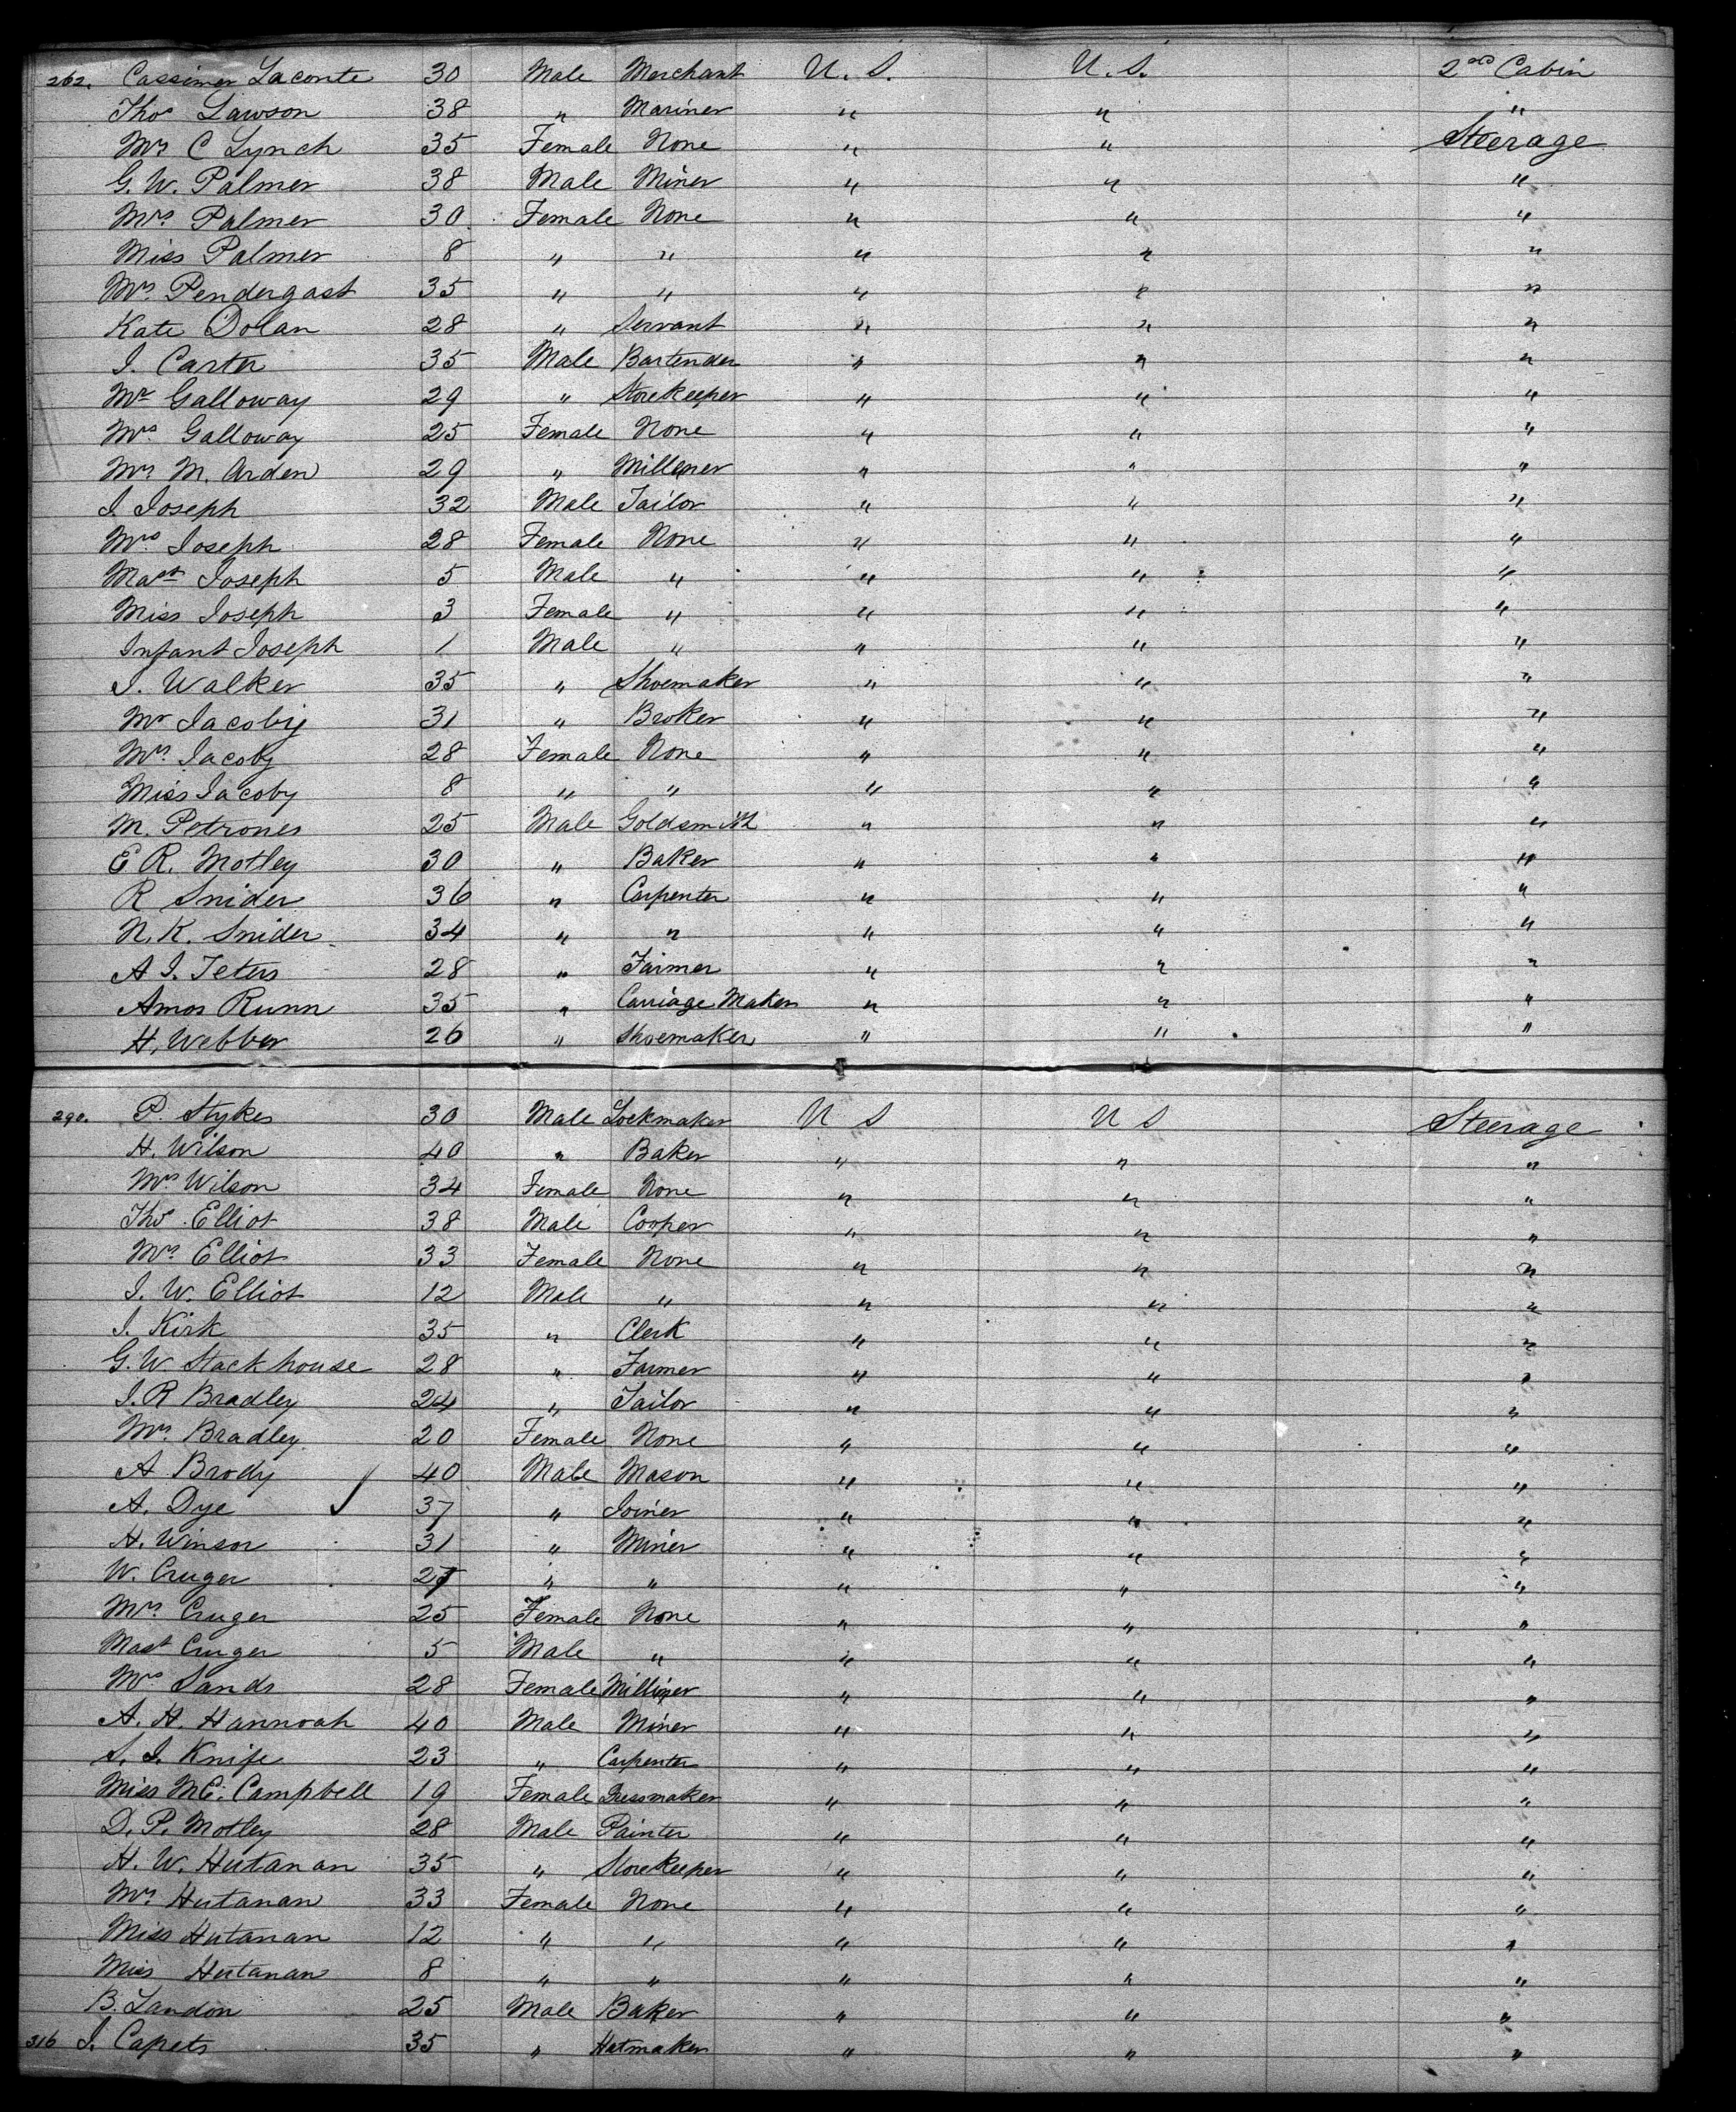 262. Cassimer Laconte 30 Male Merchant U. S. U. S. 2nd Cabin
Thos Lawson 38 " Mariner " " "
Mrs C Lynch 35 Female None " " Steerage
G. W. Palmer 38 Male Miner " " "
Mrs Palmer 30 Female None " " "
Miss Palmer 8 " " " " "
Mrs Pendergast 35 " " " " "
Kate Dolan 28 " Servant " " "
J. Carter 35 Male Bartender " " "
Mr Galloway 29 " Storekeeper " " "
Mrs Galloway 25 Female None " " "
Mrs M. Arden 29 " Millener " " "
J. Joseph 32 Male Tailor " " "
Mrs Joseph 28 Female None " " "
Mast Joseph 5 Male " " " "
Miss Joseph 3 Female " " " "
Infant Joseph 1 Male " " " "
J. Walker 35 " Shoemaker " " "
Mr Jacoby 31 " Broker " " "
Mrs Jacoby 28 Female None " " "
Miss Jacoby 8 " " " " "
M. Petrones 25 Male Goldsmith " " "
E R. Motley 30 " Baker " " "
R Snider 36 " Carpenter " " "
N. K. Snider 34 " " " " "
A J. Teters 28 " Farmer " " "
Amos Runn 35 " Carriage Maker " " "
H. Webber 26 " Shoemaker " " "
290. P. Stykes 30 Male Lockmaker U S U S Steerage
H. Wilson 40 " Baker " " "
Mrs Wilson 34 Female None " " "
Thos Elliot 38 Male Cooper " " "
Mrs Elliot 33 Female None " " "
J. W. Elliot 12 Male " " " "
J. Kirk 35 " Clerk " " "
G. W Stackhouse 28 " Farmer " " "
J. R Bradley 24 " Tailor " " "
Mrs Bradley 20 Female None " " "
A Brody 40 Male Mason " " "
A. Dye 37 " Joiner " " "
H. Winsor 31 " Miner " " "
W. Cruger " " " " "
Mrs Cruger 25 Female None " " "
Mast Cruger 5 Male " " " "
Mrs Sands 28 Female Milliner " " "
A. H. Hannoah 40 Male Miner " " "
S. J. Knife 23 " Carpenter " " "
Miss M E. Campbell 19 Female Dressmaker " " "
D. P. Motley 28 Male Painter " " "
H. W. Hutanan 35 " Storekeeper " " "
Mrs Hutanan 33 Female None " " "
Miss Hutanan 12 " " " " "
Miss Hutanan 8 " " " " "
B. Landon 25 Male Baker " " "
316 J. Capets 35 " Hatmaker " " "